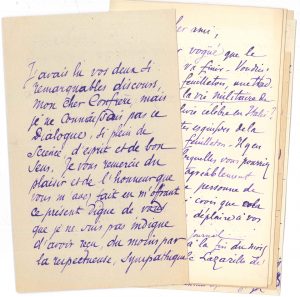 J'avais lu vos deux si
remarquables discours,
mon cher Confrère, mais
je ne connaissais pas ce
Dialogue, si plein de
Science, d'esprit et de bon
Sens. Je vous remercie du
plaisir et de l'honneur que
vous m'avez fait en m'offrant
ce présent digne de vous
que je ne suis pas indigne
d'avoir reçu, du moins par
la respectueuse, sympathique
cher ami,
vogué que le
feuilleton, une
la vie militaire de
livre célèbre en
esquisses de la
feuilleton.
vous pourriez
agréablement
personne de
crois que cela
déplaire à vos
Journal
à la fin du mois
Lazarille de